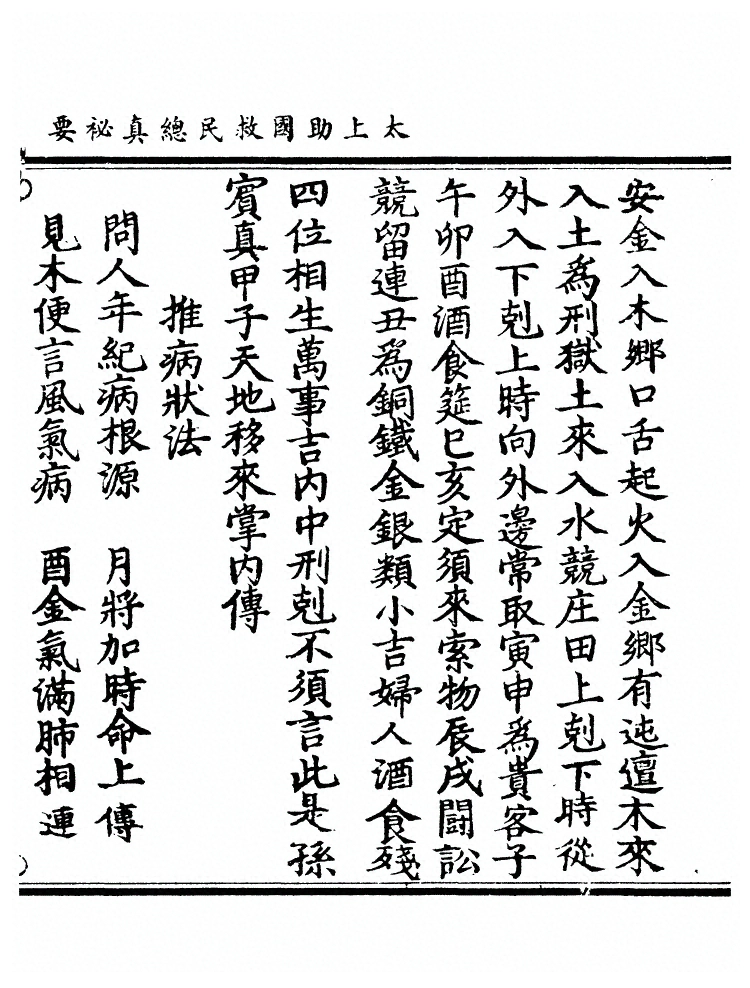 太上助國救民總真祕要
安金入木鄉口舌起火入金鄉有迍邅木來
入土為刑獄土來入水競庄田上剋下時從
外入下剋上時向外邊常取寅申為貴客子
午卯酉酒食筵巳亥定須來索物辰戌鬬訟
競留連丑為銅鐵金銀類小吉婦人酒食殘
四位相生萬事吉內中刑剋不須言此是孫
賓真甲子天地移來掌內傳
推病狀法
問人年紀病根源　月將加時命上傳
見木便言風氣病　酉金氣滿肺相連